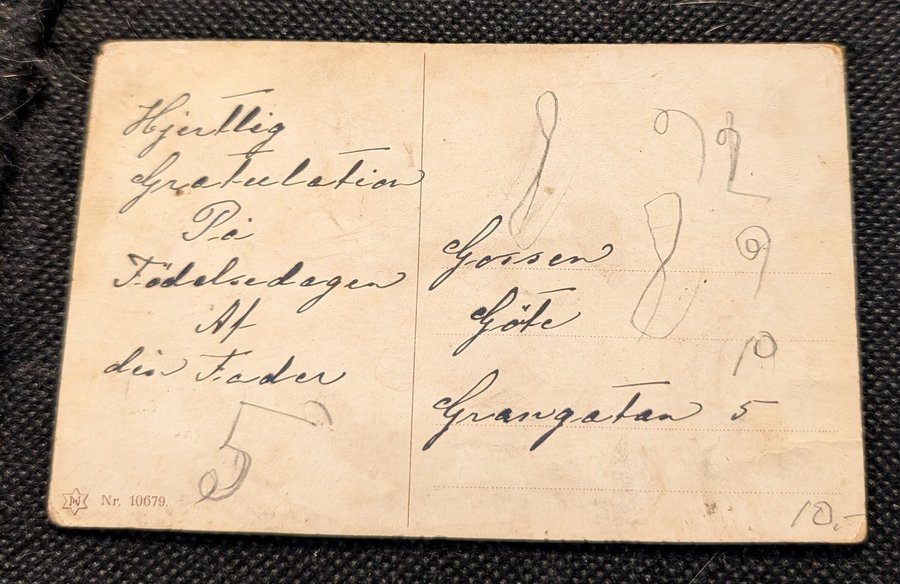 Hjerttlig
Gratulation
På
Födelsedagen
Af
din Fader
5
N Nr. 10679.
8 9 2
8 9
10
Gossen
Göte
Grangatan 5
10.-